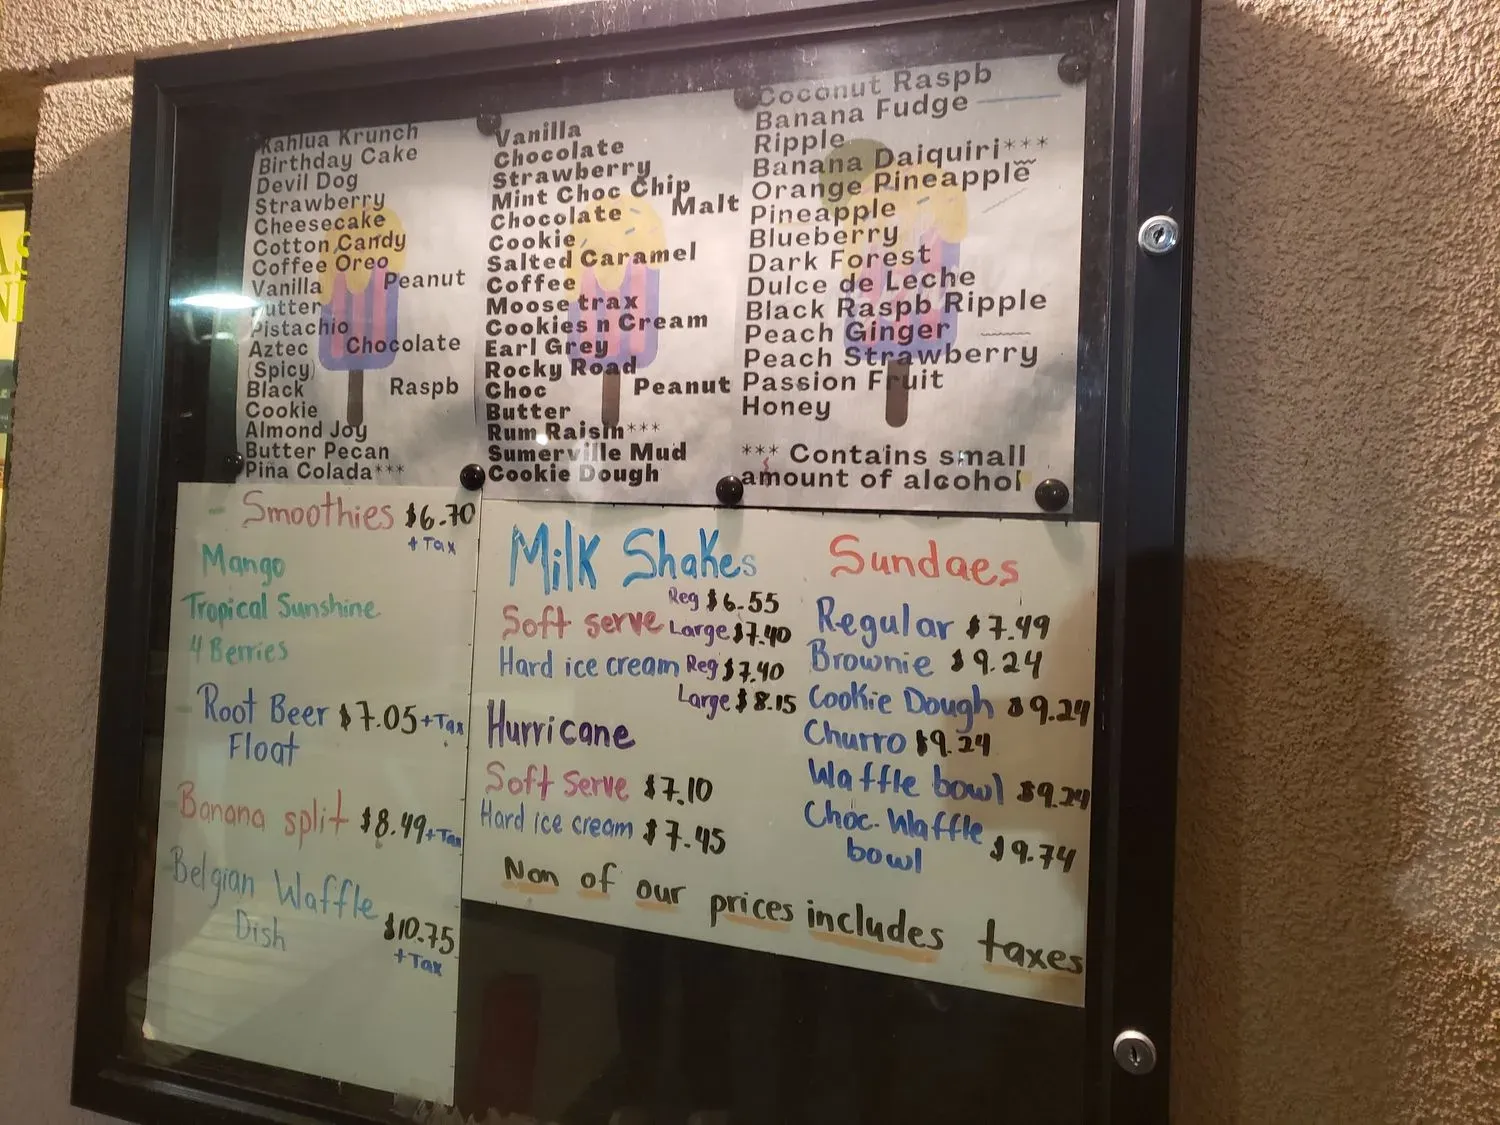 Kahlua Krunch
Birthday Cake
Devil Dog
Strawberry
Cheesecake
Cotton Candy
Coffee Oreo
Vanilla Peanut
Butter
Pistachio
Aztec Chocolate
(Spicy)
Black Raspb
Cookie
Almond Joy
Butter Pecan
Pina Colada***
Vanilla
Chocolate
Strawberry
Mint Choc Chip
Chocolate Malt
Cookie
Salted Caramel
Coffee
Moose trax
Cookies n Cream
Earl Grey
Rocky Road
Choc Peanut
Butter
Rum Raisin***
Sumerville Mud
Cookie Dough
Coconut Raspb
Banana Fudge
Ripple
Banana Daiquiri***
Orange Pineapple
Pineapple
Blueberry
Dark Forest
Dulce de Leche
Black Raspb Ripple
Peach Ginger
Peach Strawberry
Passion Fruit
Honey
*** Contains small
amount of alcohol
- Smoothies $6.70
+ Tax
Mango
Tropical Sunshine
4 Berries
- Root Beer $7.05 + Tax
Float
- Banana split $8.49 + Tax
- Belgian Waffle
Dish $10.75
+ Tax
Milk Shakes
Soft serve Reg $6.55
Large $7.40
Hard ice cream Reg $7.40
Large $8.15
Hurricane
Soft serve $7.10
Hard ice cream $7.45
Sundaes
Regular $7.49
Brownie $9.24
Cookie Dough $9.24
Churro $9.24
Waffle bowl $9.24
Choc. Waffle
bowl $9.74
Non of our prices includes taxes